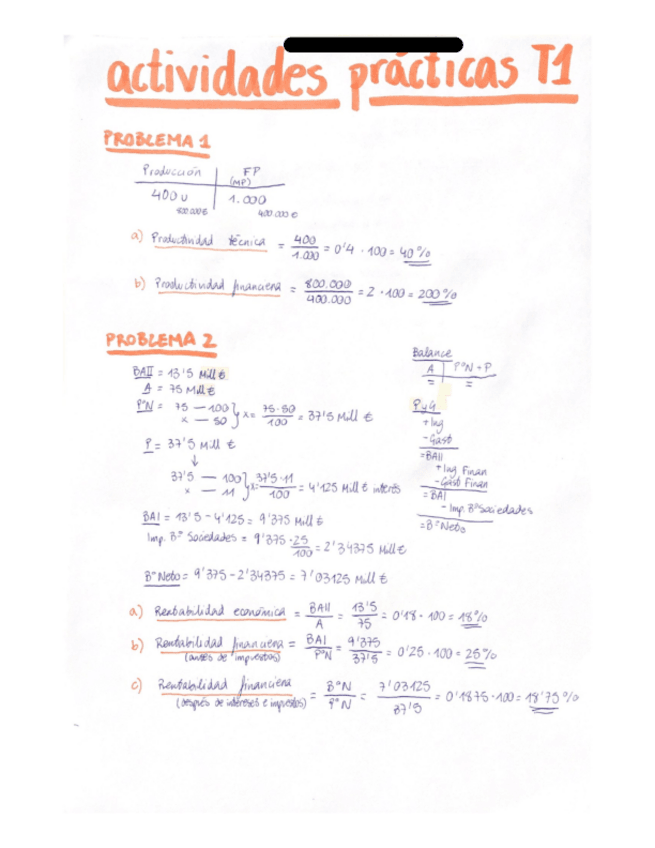 actividades prácticas T1
PROBLEMA 1
Producción | FP
(MP)
400 u | 1.000
800.000 € 400.000 €
a) Productividad técnica = 400 / 1.000 = 0'4 · 100 = 40 %
b) Productividad financiera = 800.000 / 400.000 = 2 · 100 = 200 %
PROBLEMA 2
BAII = 13'5 Mill €
A = 75 Mill €
PºN = 75 — 100 } x = 75·50 / 100 = 37'5 Mill €
x — 50
P = 37'5 Mill €
↓
37'5 — 100 } x = 37'5·11 / 100 = 4'125 Mill € interés
x — 11
BAI = 13'5 - 4'125 = 9'375 Mill €
Imp. Bº Sociedades = 9'375 · 25 / 100 = 2'34375 Mill €
Bº Neto = 9'375 - 2'34375 = 7'03125 Mill €
Balance
A | PºN + P
= =
P y G
+ Ing
- Gast
= BAII
+ Ing Finan
- Gast Finan
= BAI
- Imp. Bº Sociedades
= Bº Neto
a) Rentabilidad económica = BAII / A = 13'5 / 75 = 0'18 · 100 = 18 %
b) Rentabilidad financiera = BAI / PºN = 9'375 / 37'5 = 0'25 · 100 = 25 %
(antes de impuestos)
c) Rentabilidad financiera = BºN / PºN = 7'03125 / 37'5 = 0'1875 · 100 = 18'75 %
(después de intereses e impuestos)